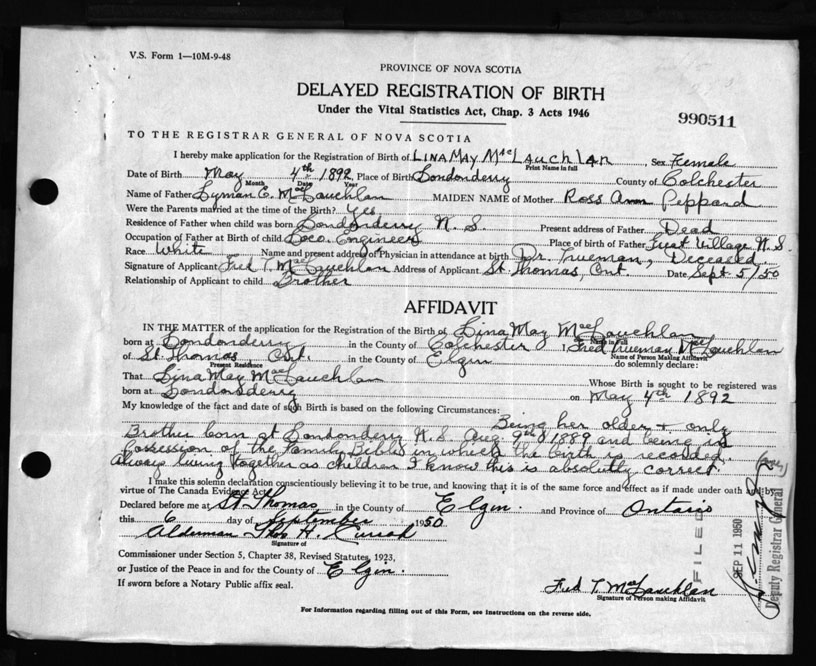 V.S. Form 1—10M-9-48
PROVINCE OF NOVA SCOTIA
DELAYED REGISTRATION OF BIRTH
Under the Vital Statistics Act, Chap. 3 Acts 1946
990511
TO THE REGISTRAR GENERAL OF NOVA SCOTIA
I hereby make application for the Registration of Birth of LINA MAY MacLauchlan, Sex Female
Print Name in Full
Date of Birth May 4th 1892, Place of Birth Londonderry County of Colchester
Month Date Year
Name of Father Lyman E. MacLauchlan MAIDEN NAME of Mother Ross Ann Peppard
Were the Parents married at the time of the Birth? Yes
Residence of Father when child was born Londonderry N.S. Present address of Father Dead
Occupation of Father at Birth of child Loco. Engineer Place of birth of Father Great Village N.S.
Race White Name and present address of Physician in attendance at birth Dr. Trueman, Deceased.
Signature of Applicant Fred T. MacLauchlan Address of Applicant St. Thomas, Ont. Date Sept 5/50
Relationship of Applicant to child Brother
AFFIDAVIT
IN THE MATTER of the application for the Registration of the Birth of Lina May MacLauchlan
Name in Full
born at Londonderry in the County of Colchester I, Fred Trueman MacLauchlan
Name of Person Making Affidavit
of St. Thomas, Ont. in the County of Elgin do solemnly declare:
Present Residence
That Lina May MacLauchlan Whose Birth is sought to be registered was
born at Londonderry on May 4th 1892
My knowledge of the fact and date of such Birth is based on the following Circumstances:
Being her older + only
Brother born at Londonderry N.S. Aug. 9th 1889 and being in
Possession of the Family Bible in which the birth is recorded.
Always living together as children I know this is absolutely correct.
I make this solemn declaration conscientiously believing it to be true, and knowing that it is of the same force and effect as if made under oath and by
virtue of The Canada Evidence Act.
Declared before me at St. Thomas in the County of Elgin. and Province of Ontario
this 6 day of September 1950
Alderman Thos H.
Signature of
Commissioner under Section 5, Chapter 38, Revised Statutes, 1923,
or Justice of the Peace in and for the County of Elgin.
If sworn before a Notary Public affix seal.
Fred T. MacLauchlan
Signature of Person making Affidavit
For Information regarding filling out of this Form, see instructions on the reverse side.
FILED
SEP 11 1950
Deputy Registrar General